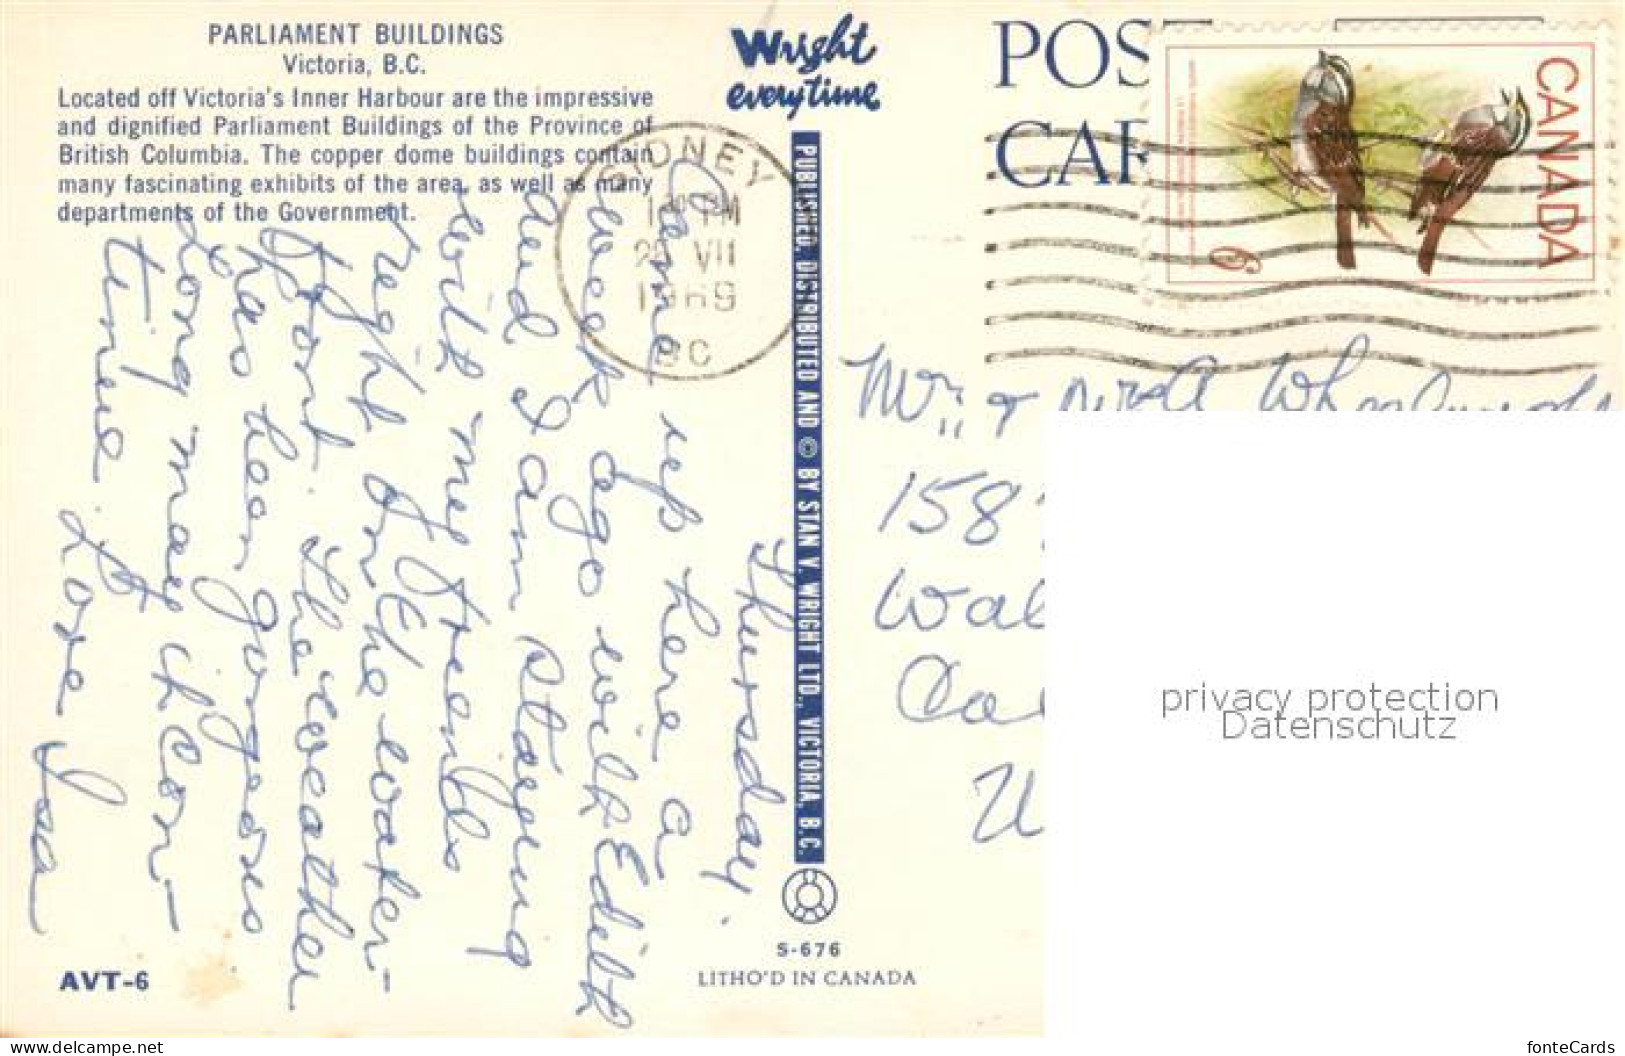 PARLIAMENT BUILDINGS
Victoria, B.C.
Located off Victoria's Inner Harbour are the impressive
and dignified Parliament Buildings of the Province of
British Columbia. The copper dome buildings contain
many fascinating exhibits of the area, as well as many
departments of the Government.
Wright
everytime
POST
CAR
CANADA
6
SIDNEY
PM
VII
1969
BC
Thursday.
Came up here a
week ago with Edith
and I am staying
with my friends
right on the water-
front. The weather
has been gorgeous
Long may it con-
tinue.
Love
PUBLISHED, DISTRIBUTED AND © BY STAN V. WRIGHT LTD., VICTORIA, B.C.
Mr. & Mrs
158
Wal
Cal
U
privacy protection
Datenschutz
AVT-6
S-676
LITHO'D IN CANADA
www.delcampe.net
fonteCards